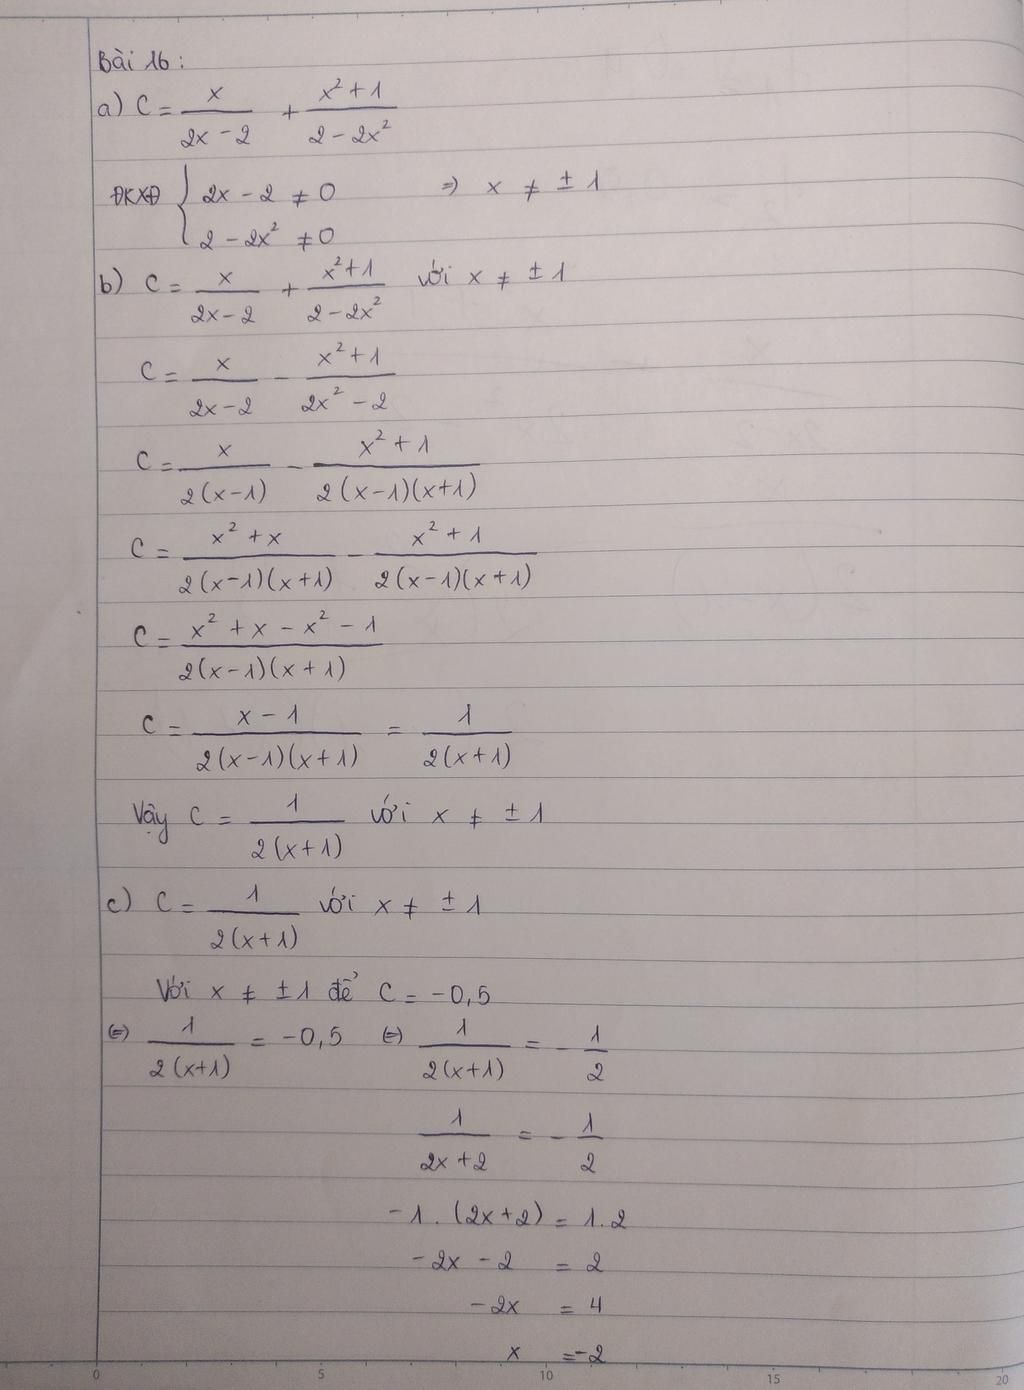 Bài 16:
a) C = x/(2x - 2) + (x² + 1)/(2 - 2x²)
ĐKXĐ { 2x - 2 ≠ 0 => x ≠ ± 1
2 - 2x² ≠ 0
b) C = x/(2x - 2) + (x² + 1)/(2 - 2x²) với x ≠ ± 1
C = x/(2x - 2) - (x² + 1)/(2x² - 2)
C = x/(2(x - 1)) - (x² + 1)/(2(x - 1)(x + 1))
C = (x² + x)/(2(x - 1)(x + 1)) - (x² + 1)/(2(x - 1)(x + 1))
C = (x² + x - x² - 1)/(2(x - 1)(x + 1))
C = (x - 1)/(2(x - 1)(x + 1)) = 1/(2(x + 1))
Vậy C = 1/(2(x + 1)) với x ≠ ± 1
c) C = 1/(2(x + 1)) với x ≠ ± 1
Với x ≠ ± 1 để C = -0,5
(=) 1/(2(x + 1)) = -0,5 (=) 1/(2(x + 1)) = - 1/2
1/(2x + 2) = - 1/2
-1 . (2x + 2) = 1.2
-2x - 2 = 2
-2x = 4
x = -2
0 5 10 15 20